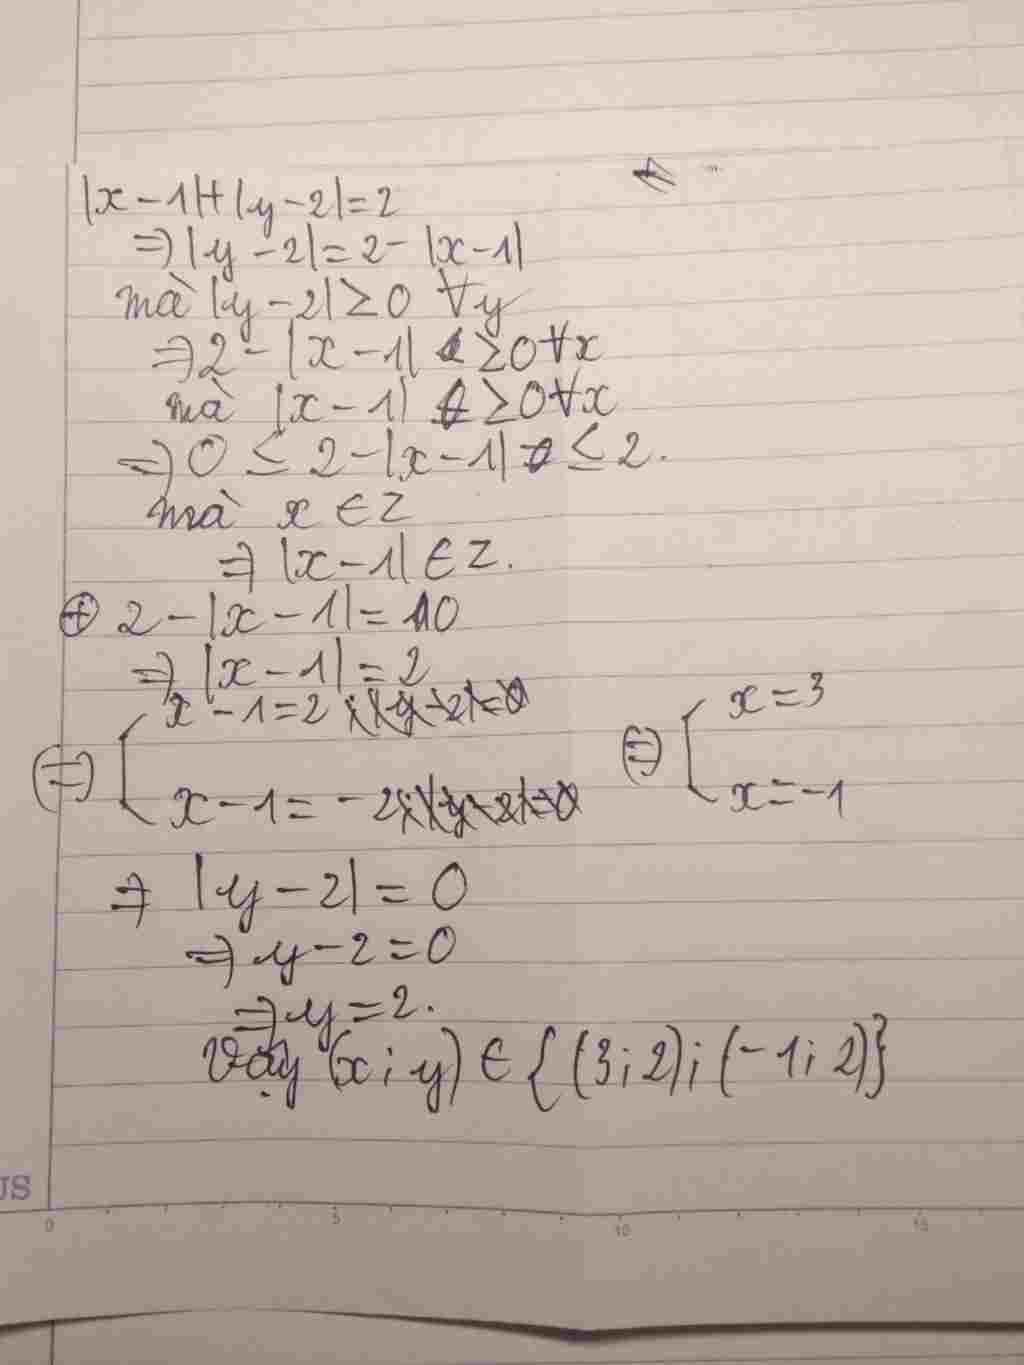 |x-1|+|y-2|=2
=> |y-2|=2-|x-1|
mà |y-2|≥0 ∀y
=> 2-|x-1| ≥0 ∀x
mà |x-1| ≥0 ∀x
=> 0 ≤ 2-|x-1| ≤ 2.
mà x ∈ Z
=> |x-1| ∈ Z.
⊕ 2-|x-1|=0
=> |x-1|=2
(=) [ x-1=2
x-1=-2
(=) [ x=3
x=-1
=> |y-2|=0
=> y-2=0
=> y=2.
Vậy (x;y) ∈ {(3;2);(-1;2)}
US
0 5 10 15